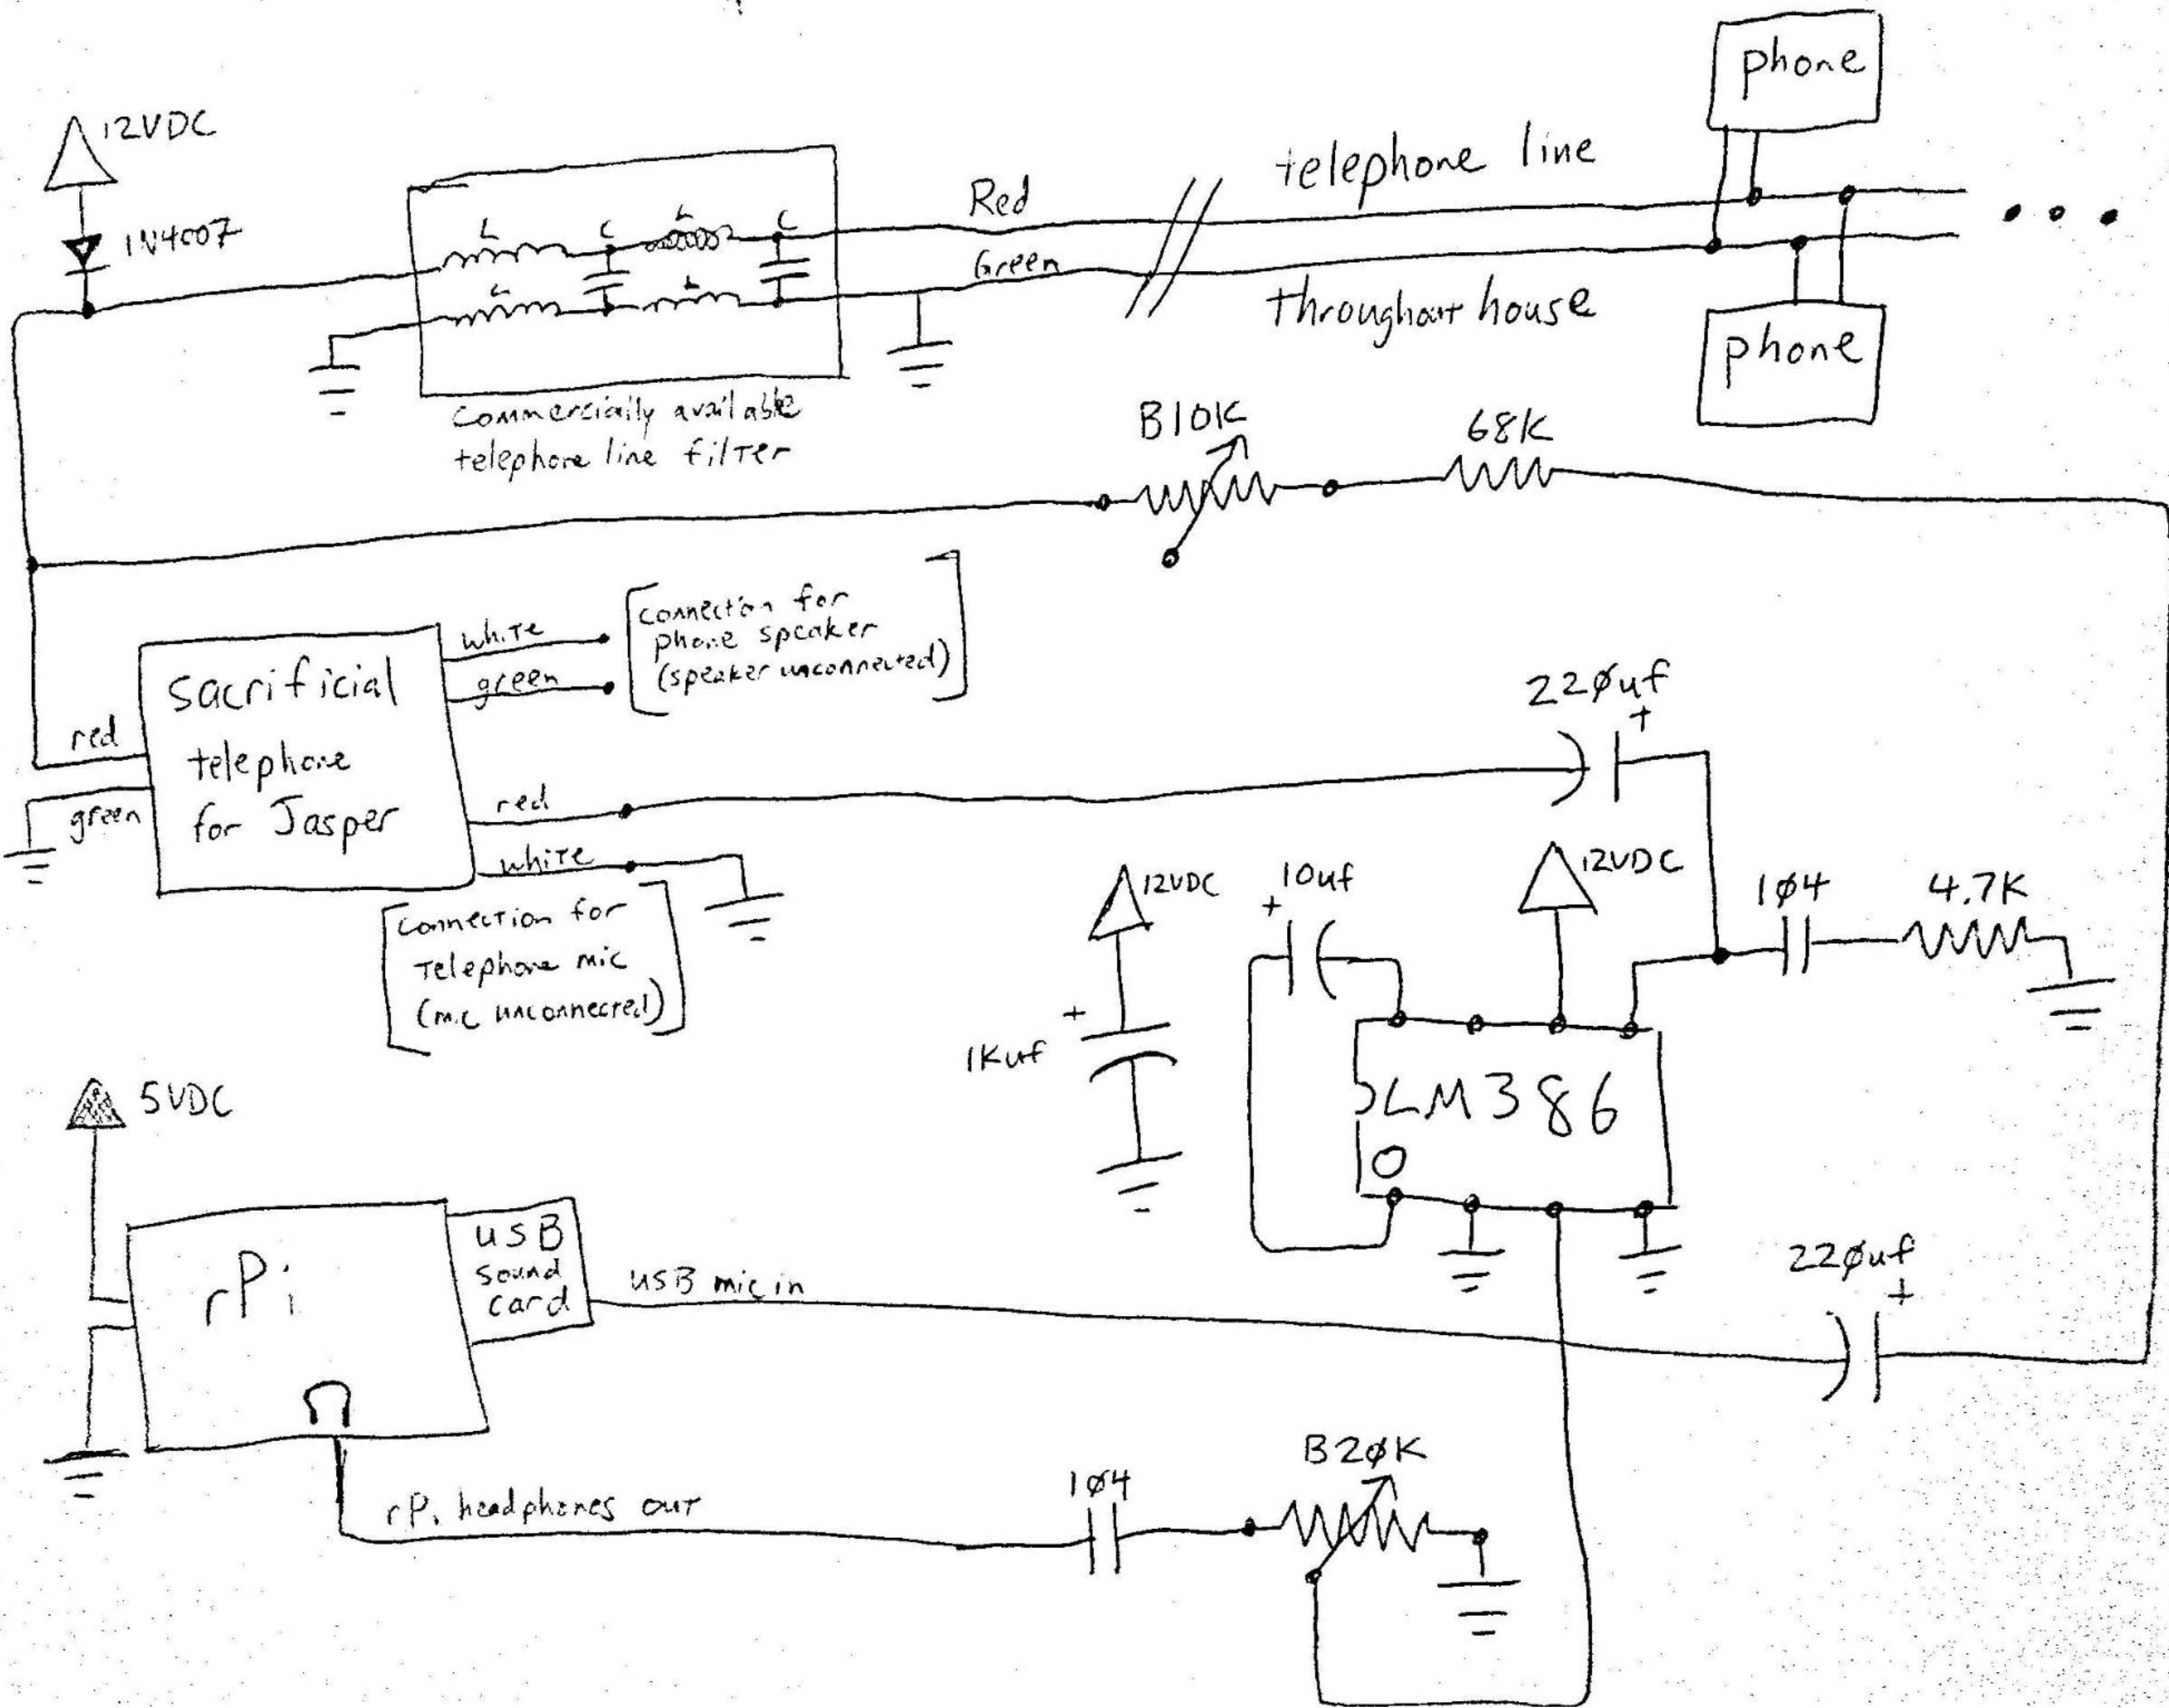 phone
12VDC
1N4007
L
C
L
C
L
L
Red
Green
telephone line
throughout house
phone
Commercially available
telephone line filter
B10K
68K
white
green
[Connection for
phone speaker
(speaker unconnected)]
sacrificial
telephone
for Jasper
red
green
red
white
[Connection for
Telephone mic
(mic unconnected)]
22øuf
+
12VDC
10uf
+
12VDC
1ø4
4.7K
+
1Kuf
LM386
5VDC
rPi
USB
sound
card
USB mic in
22øuf
+
rPi headphones out
1ø4
B2øK